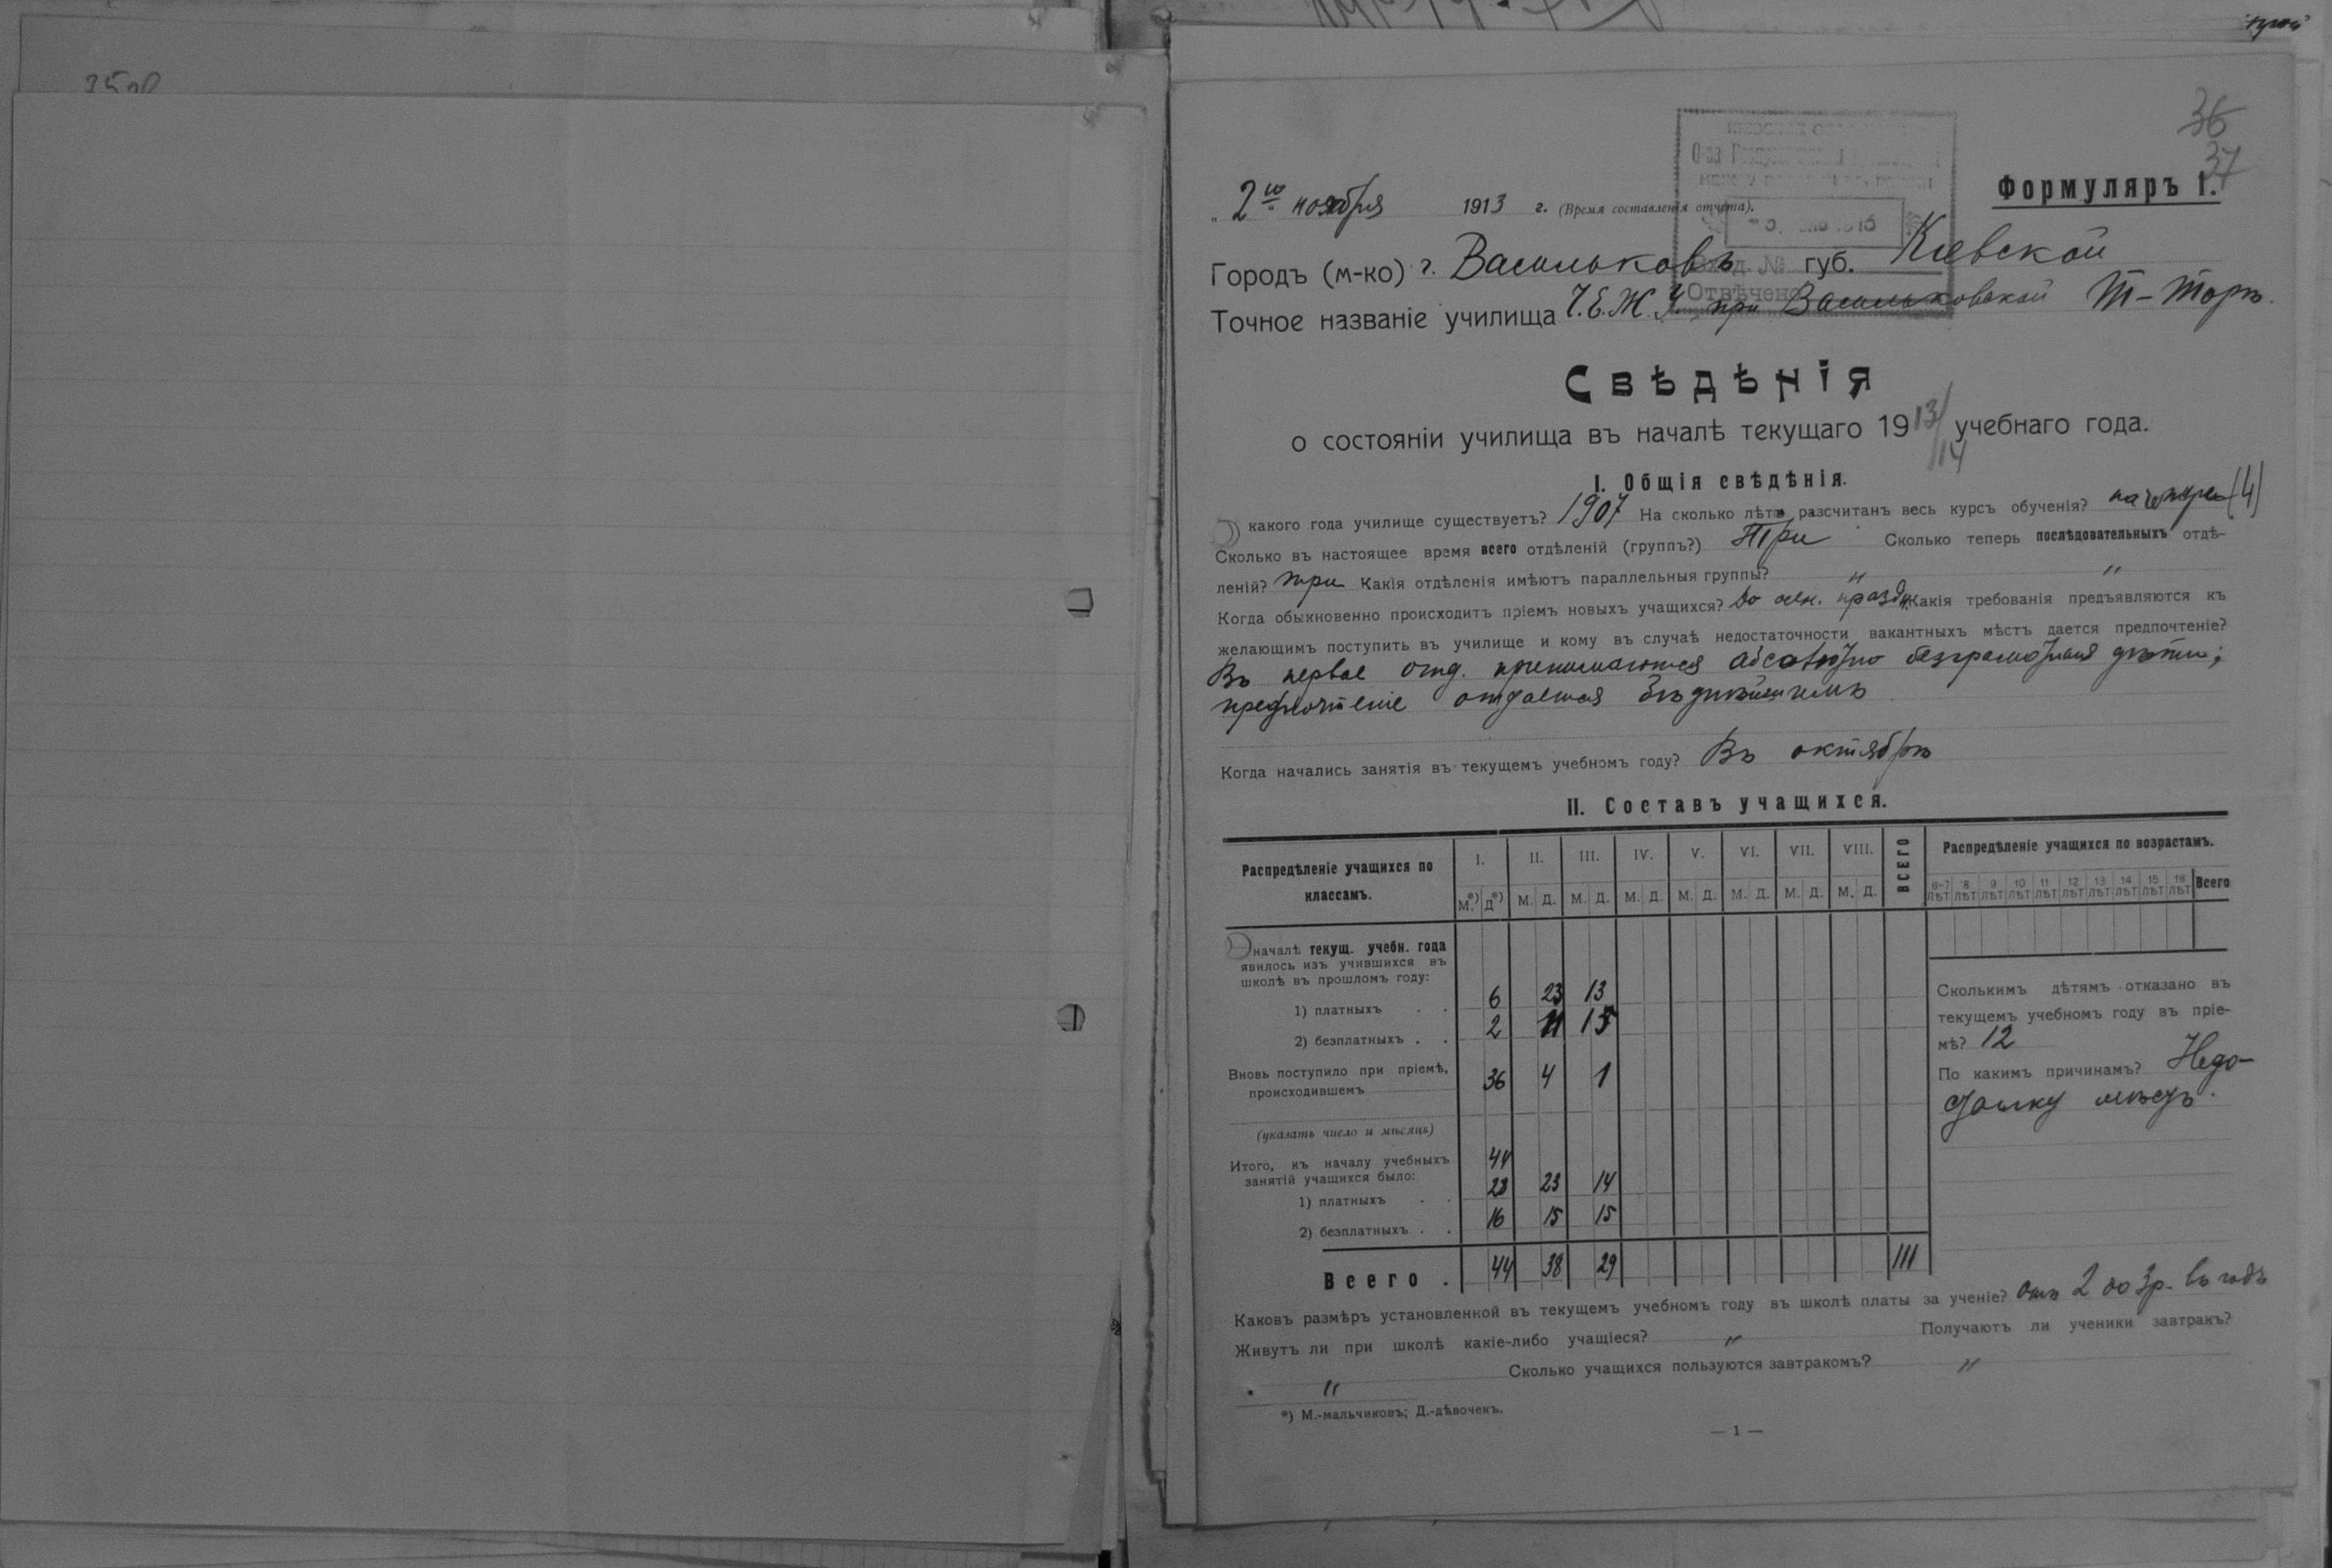 36
37
Формуляръ I.
2го ноября 1913 г. (Время составленія отчета).
Городъ (м-ко) г. Васильковъ губ. Кіевской
Вход. №
Отвѣчено
Точное названіе училища Ч.Е.Ж.У. при Васильковской Т-Торѣ.
Свѣдѣнія
о состояніи училища въ началѣ текущаго 1913/14 учебнаго года.
I. Общія свѣдѣнія.
какого года училище существуетъ? 1907 На сколько лѣтъ разсчитанъ весь курсъ обученія? на четыре (4)
Сколько въ настоящее время всего отдѣленій (группъ?) Три Сколько теперь послѣдовательныхъ отдѣ-
леній? три Какія отдѣленія имѣютъ параллельныя группы? " "
Когда обыкновенно происходитъ пріемъ новыхъ учащихся? во осен. праздн. Какія требованія предъявляются къ
желающимъ поступить въ училище и кому въ случаѣ недостаточности вакантныхъ мѣстъ дается предпочтеніе?
Въ первое отд. принимаются абсолютно безграмотныя дѣти;
предпочтеніе отдается бѣднѣйшимъ
Когда начались занятія въ текущемъ учебномъ году? Въ октябрѣ
II. Составъ учащихся.
Распредѣленіе учащихся по классамъ. I. II. III. IV. V. VI. VII. VIII. ВСЕГО Распредѣленіе учащихся по возрастамъ.
М.*) Д*) М. Д. М. Д. М. Д. М. Д. М. Д. М. Д. М. Д. 6-7 лѣт 8 лѣт 9 лѣт 10 лѣт 11 лѣт 12 лѣт 13 лѣт 14 лѣт 15 лѣт 16 лѣт Всего
началѣ текущ. учебн. года
явилось изъ учившихся въ
школѣ въ прошломъ году:
1) платныхъ . . 6 23 13
2) безплатныхъ . . 2 11 15
Вновь поступило при пріемѣ,
происходившемъ 36 4 1
(указать число и мѣсяцъ)
Итого, къ началу учебныхъ 44
занятій учащихся было:
1) платныхъ . . 28 23 14
2) безплатныхъ . . 16 15 15
Всего . 44 38 29 111
Сколькимъ дѣтямъ отказано въ
текущемъ учебномъ году въ пріе-
мѣ? 12
По какимъ причинамъ? Недо-
статку мѣстъ.
Каковъ размѣръ установленной въ текущемъ учебномъ году въ школѣ платы за ученіе? отъ 2 до 3р. въ годъ
Живутъ ли при школѣ какіе-либо учащіеся? " Получаютъ ли ученики завтракъ?
" Сколько учащихся пользуются завтракомъ? "
*) М.-мальчиковъ; Д.-дѣвочекъ.
— 1 —